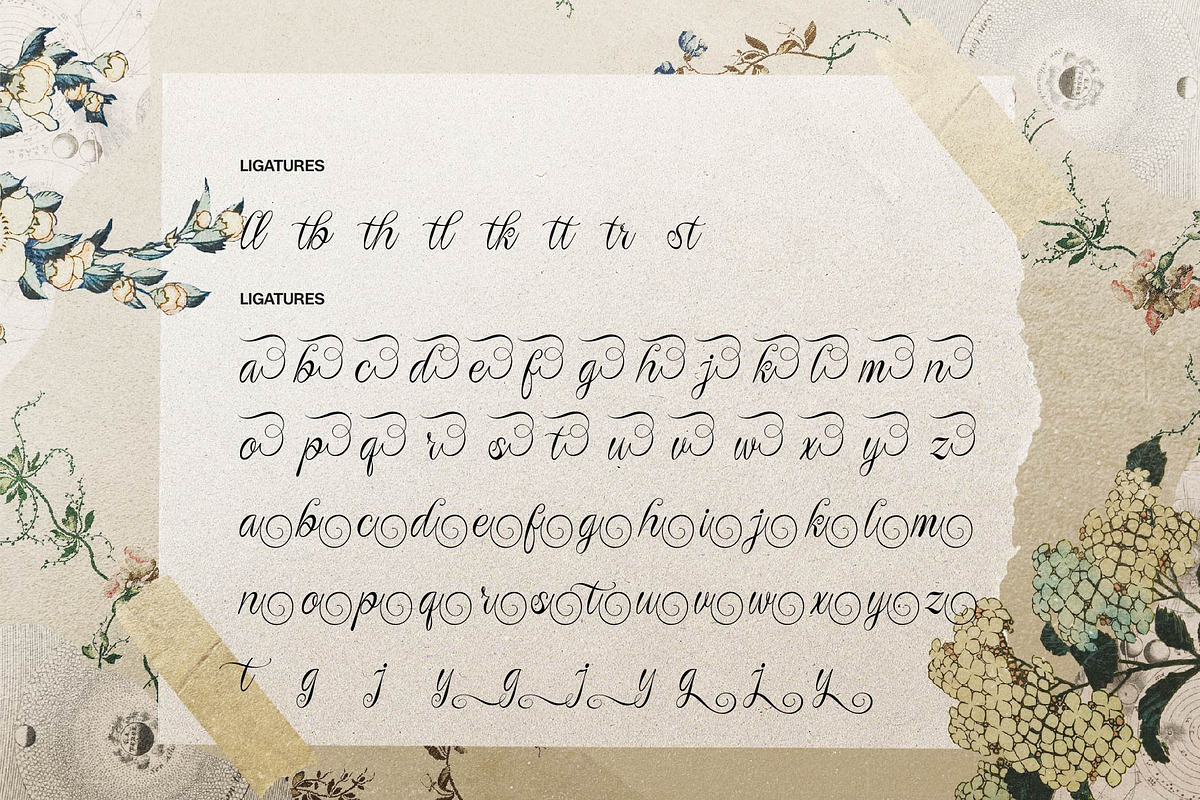 LIGATURES
ll tb th tl tk tt tr st
LIGATURES
a b c d e f g h j k l m n
o p q r s t u v w x y z
a b c d e f g h i j k l m
n o p q r s t u v w x y z
t g j y g j y g j y